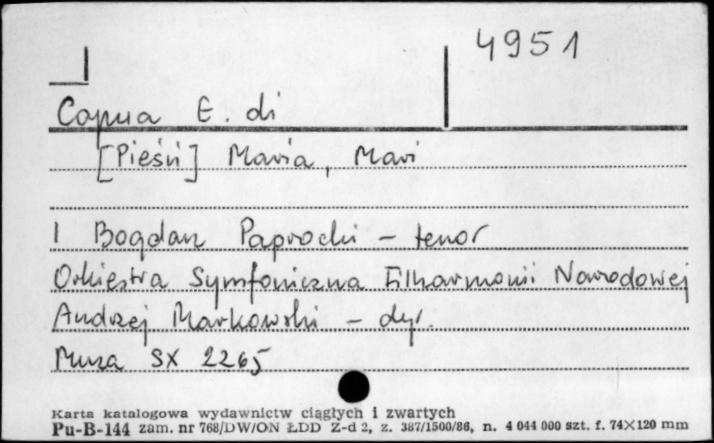 4951
Capua E. di
[Pieśń] Maria, Mari
1 Bogdan Paprocki - tenor
Orkiestra Symfoniczna Filharmonii Narodowej
Andrzej Markowski - dyr.
Muza SX 2265
Karta katalogowa wydawnictw ciągłych i zwartych
Pu-B-144 zam. nr 768/DW/ON ŁDD Z-d 2, z. 387/1500/86, n. 4 044 000 szt. f. 74×120 mm